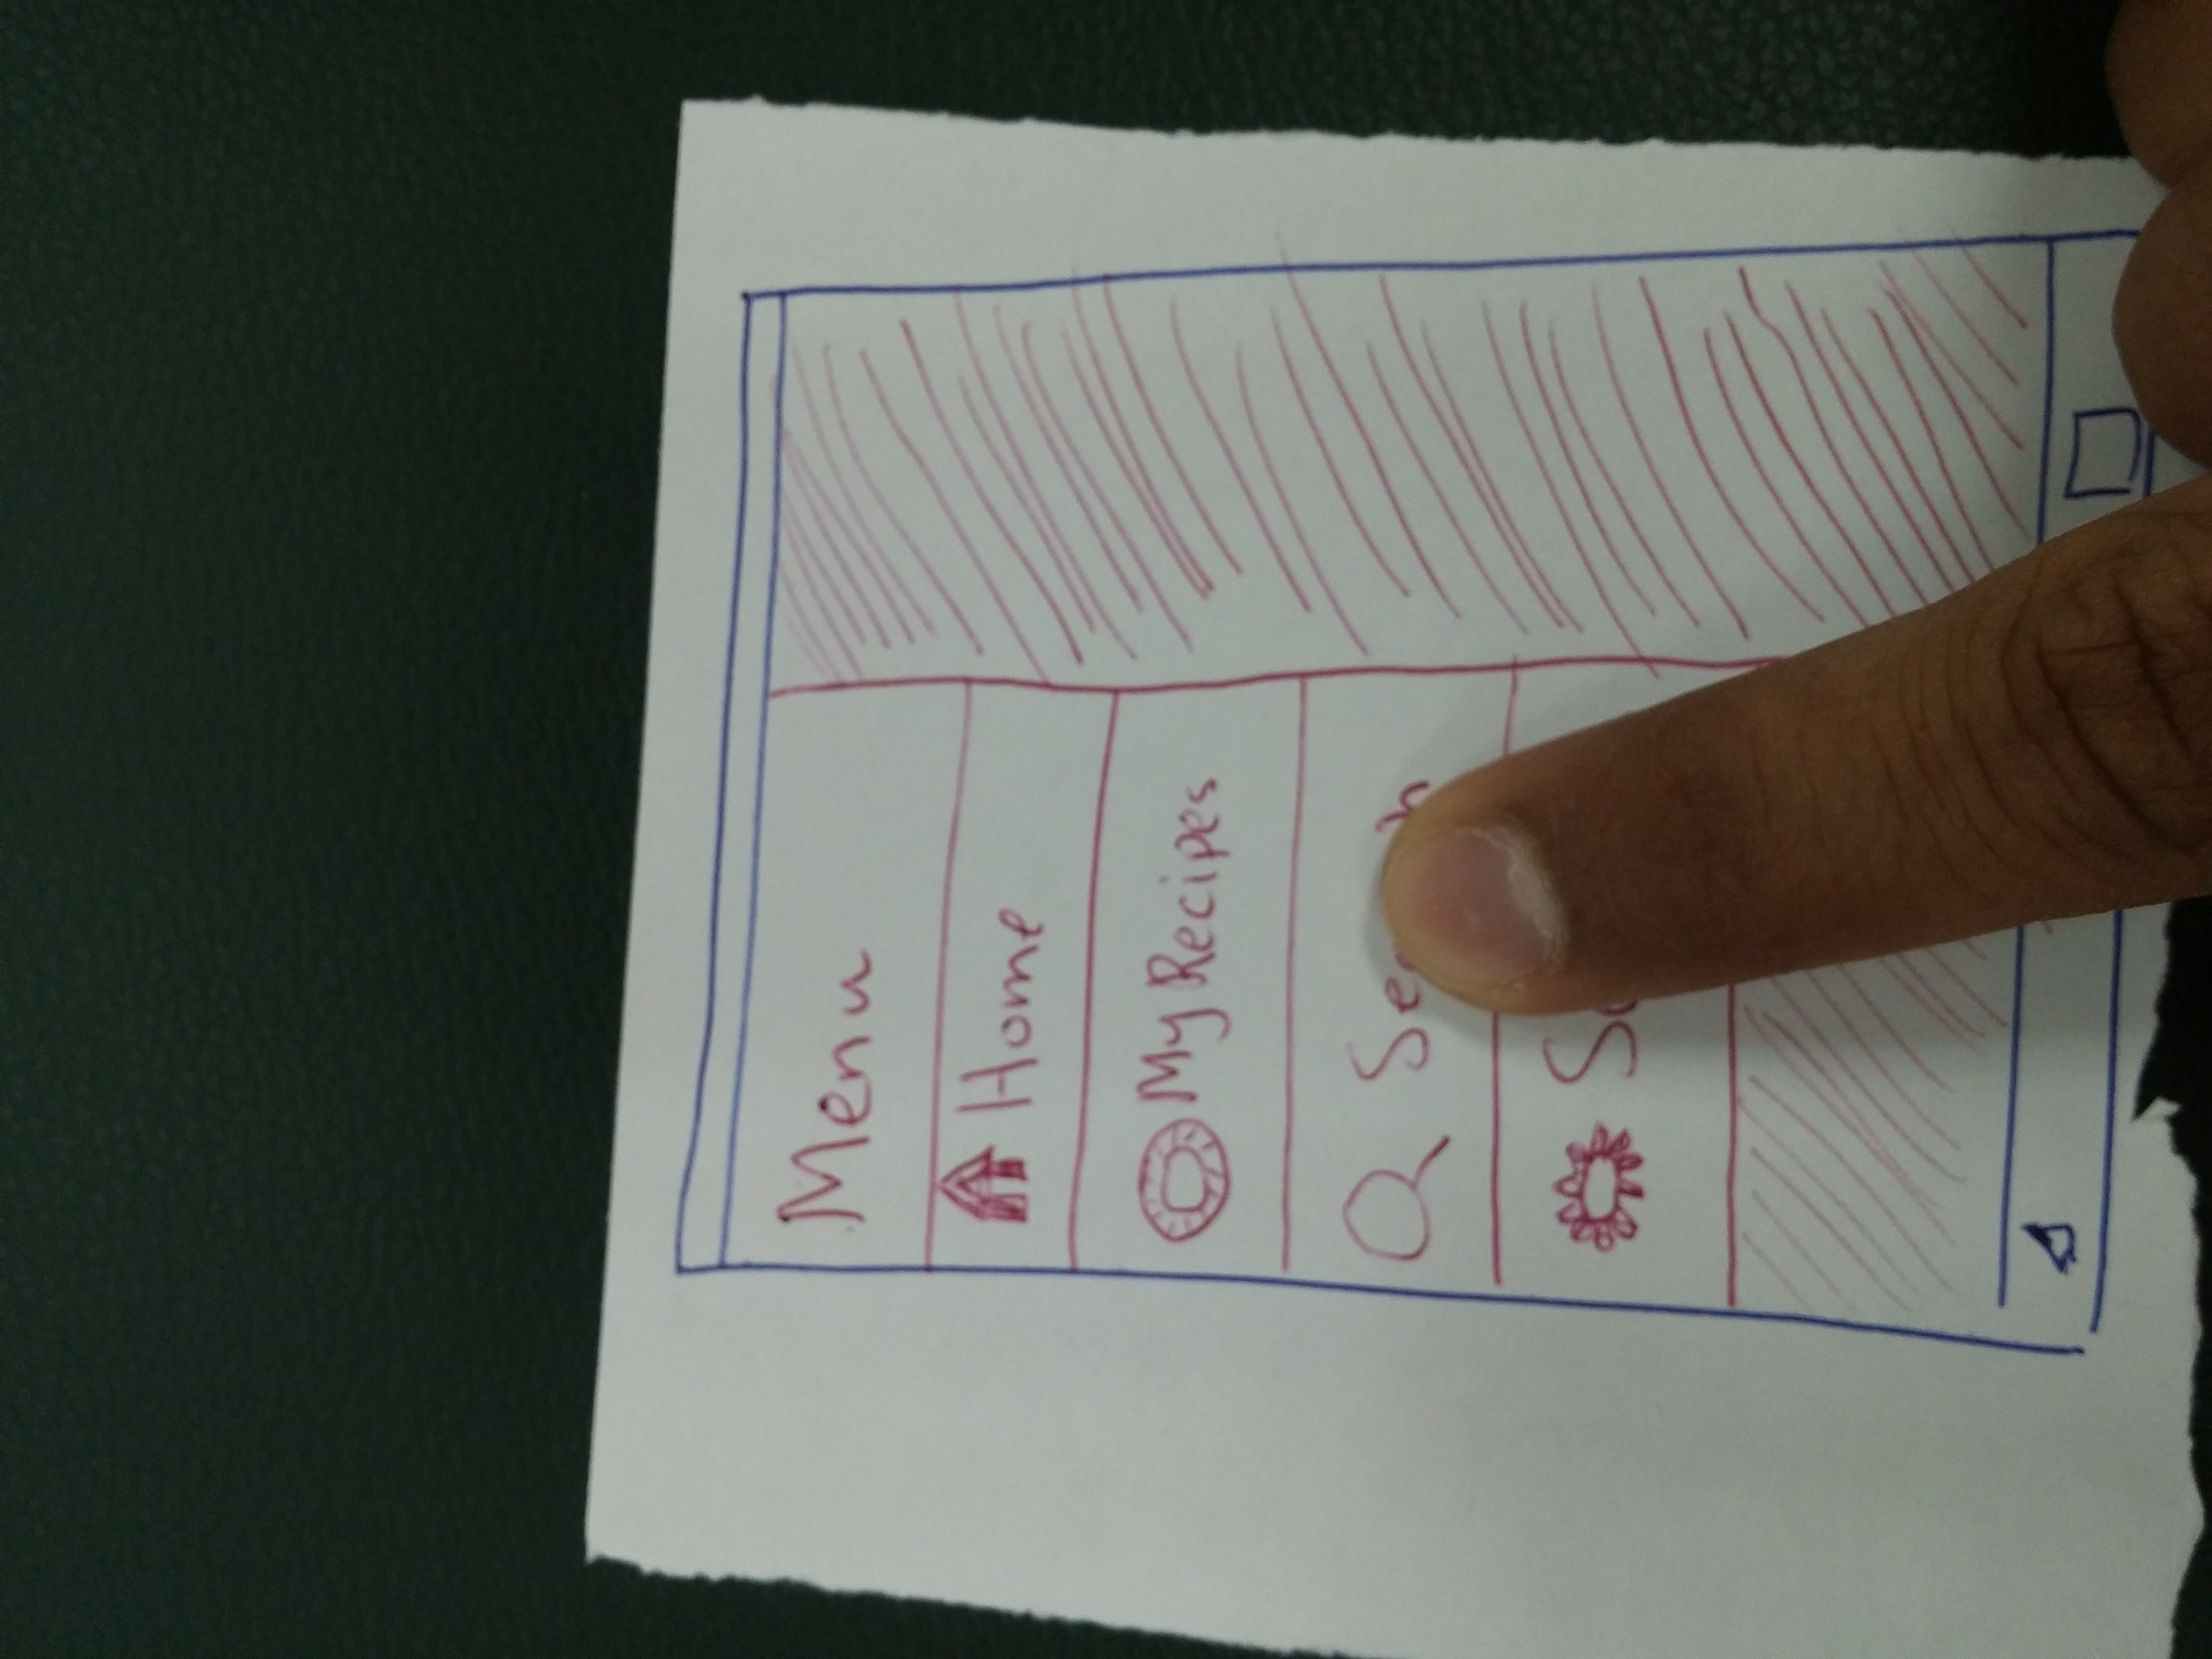 Menu
Home
My Recipes
Search